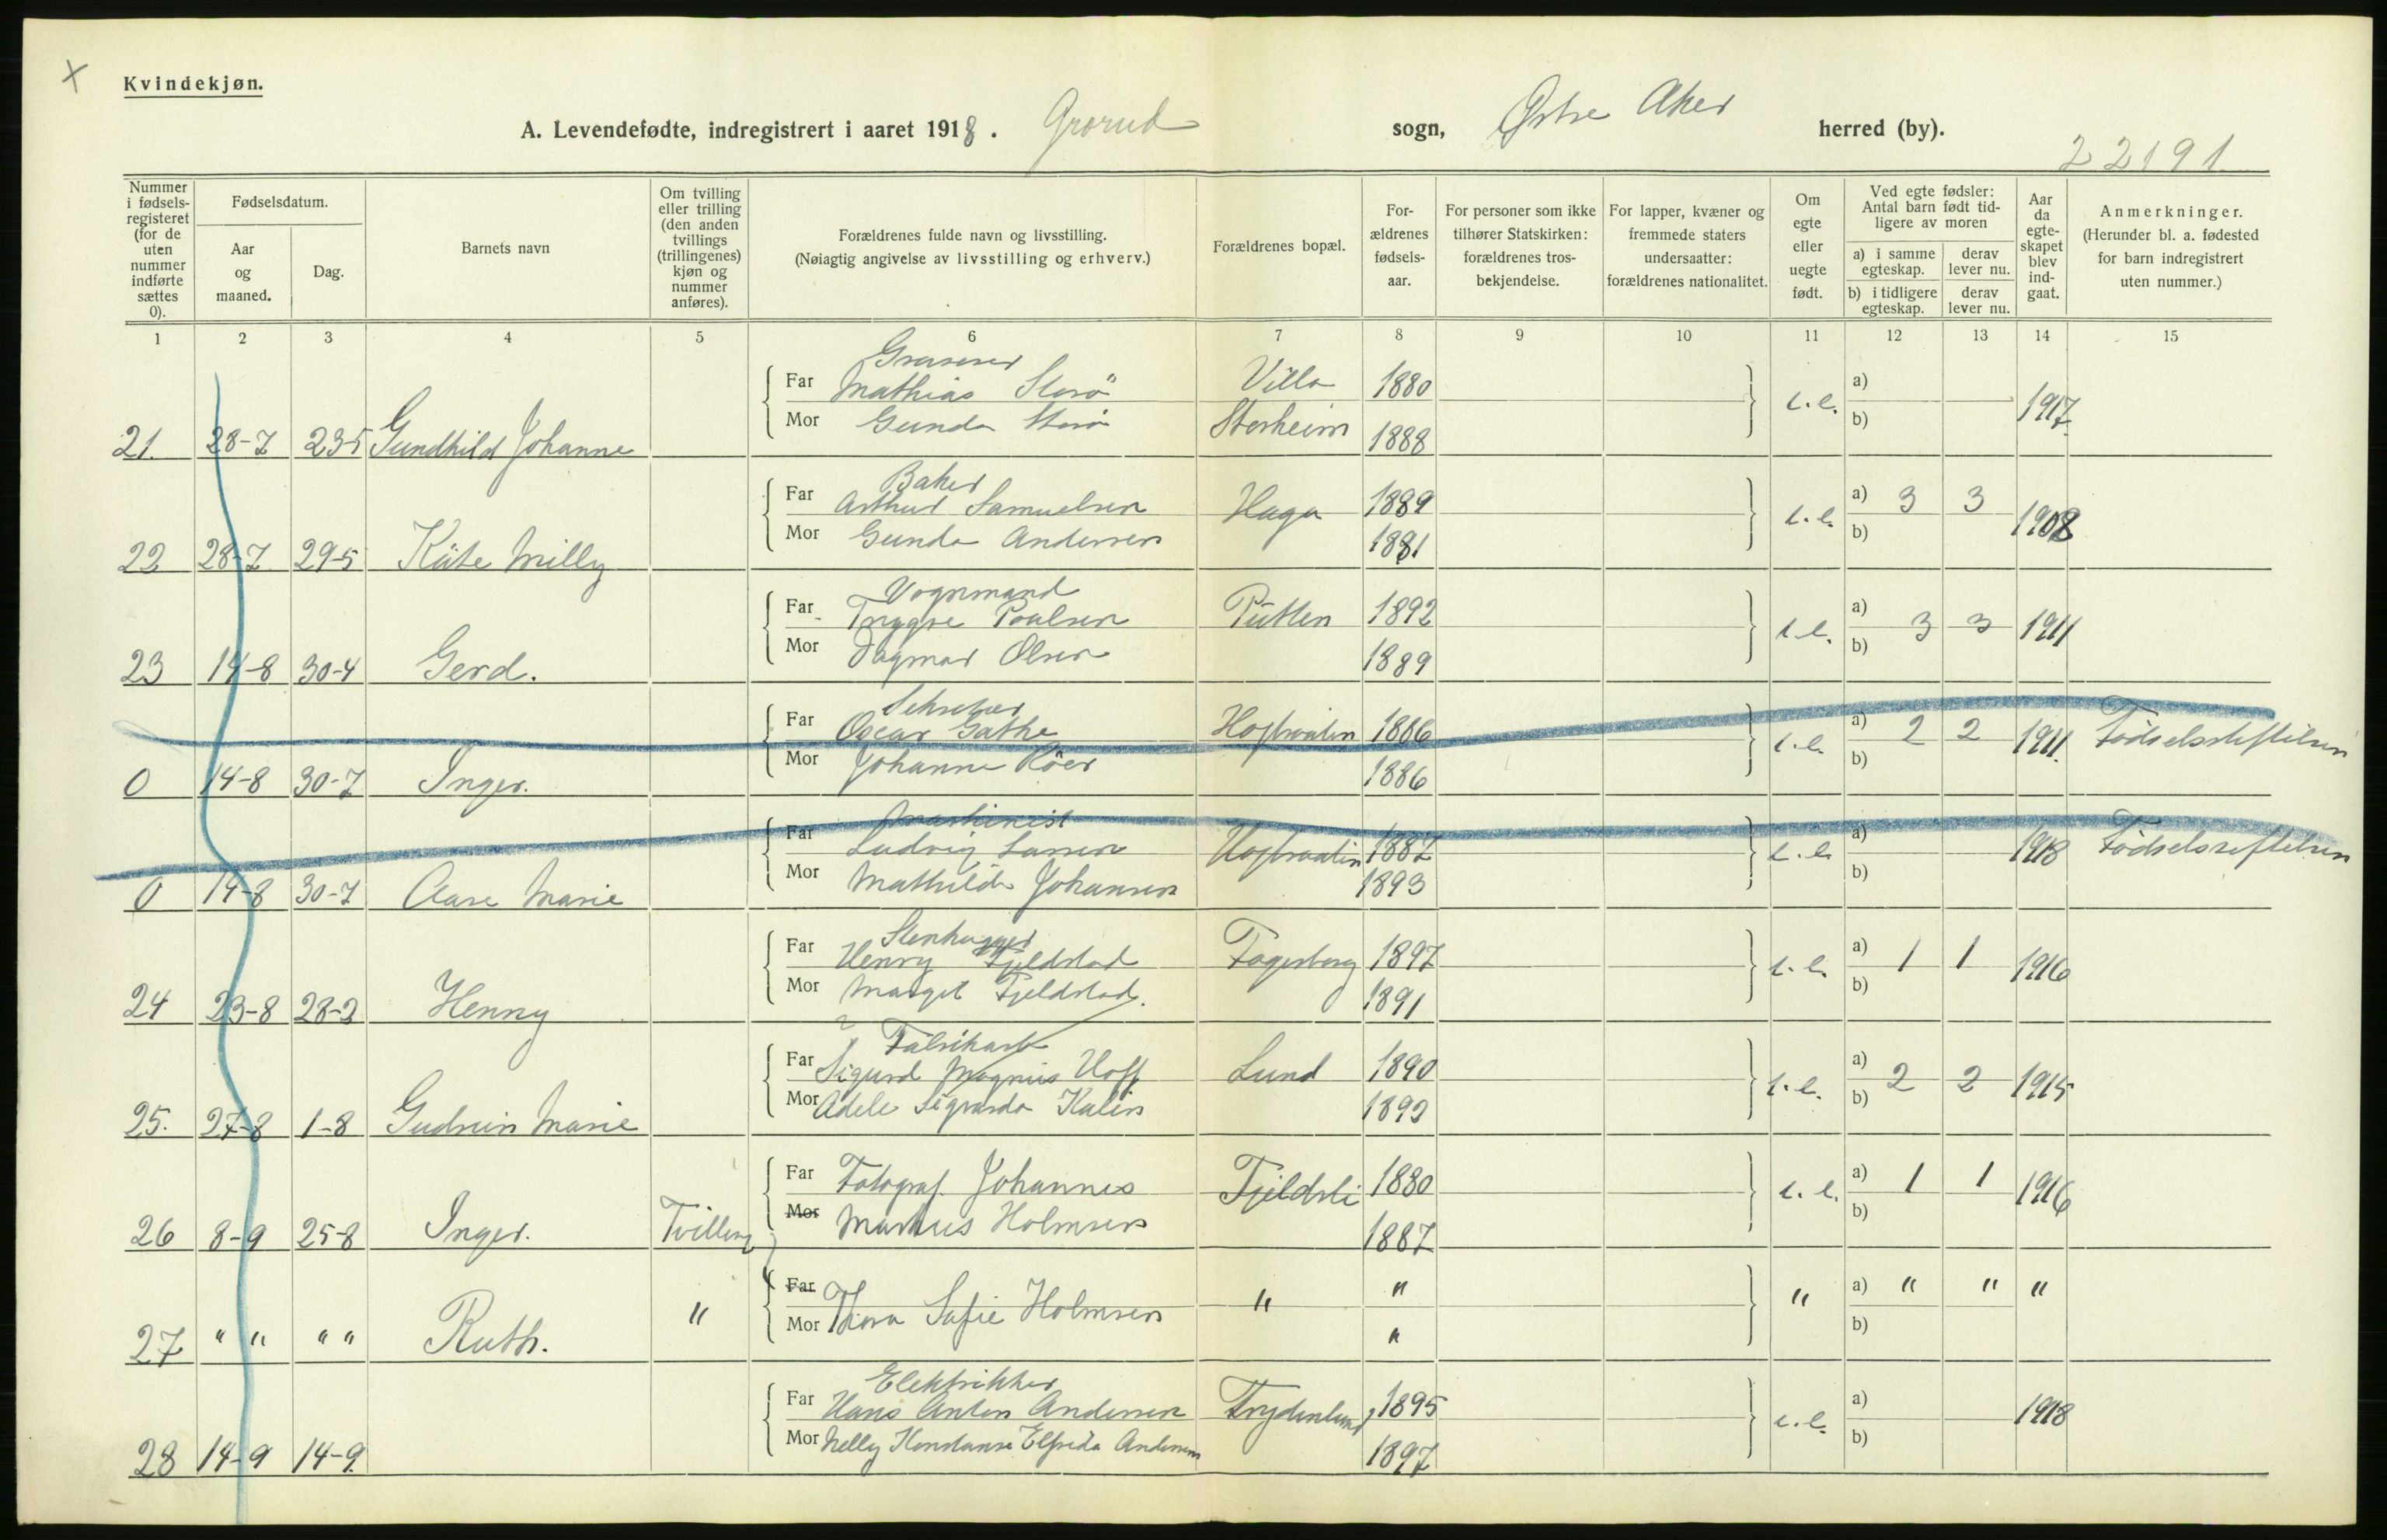 Kvindekjøn.
A. Levendefødte, indregistrert i aaret 1918. Grorud sogn, Østre Aker herred (by).
22191
Nummer i fødsels-registeret (for de uten nummer indførte sættes 0).
Fødselsdatum.
Aar og maaned.
Dag.
Barnets navn
Om tvilling eller trilling (den anden tvillings (trillingenes) kjøn og nummer anføres).
Forældrenes fulde navn og livsstilling.
(Nøiagtig angivelse av livsstilling og erhverv.)
Forældrenes bopæl.
For-ældrenes fødsels-aar.
For personer som ikke tilhører Statskirken: forældrenes tros-bekjendelse.
For lapper, kvæner og fremmede staters undersaatter: forældrenes nationalitet.
Om egte eller uegte født.
Ved egte fødsler: Antal barn født tid-ligere av moren
a) i samme egteskap.
derav lever nu.
b) i tidligere egteskap.
derav lever nu.
Aar da egte-skapet blev ind-gaat.
Anmerkninger.
(Herunder bl. a. fødested for barn indregistrert uten nummer.)
1 2 3 4 5 6 7 8 9 10 11 12 13 14 15
Far Mathias Storö Villa 1880 a)
Mor Gunda Storö Storheim 1888 b) 1917
21. 28-7 23-5 Gundhild Johanne
Baker
Far Arthur Samuelsen Haga 1889 a) 3 3
Mor Gunda Andersen 1881 b) 1908
22 28-7 29-5 Käte Milly
Vognmand
Far Trygve Poulsen 1892 a)
Mor Dagmar Olsen 1889 b) 3 3 1911
23 14-8 30-4 Gerd.
Far Oscar Gathe 1886 a) 2 2 1911. Fødselsstiftelsen
Mor Johanne Röer 1886 b)
0 14-8 30-7 Inger.
Maskinist
Far Ludvig Larsen 1887 a) 1918 Fødselsstiftelsen
Mor Mathilde Johansen 1893 b)
0 14-8 30-7 Aase Marie
Stenhugger
Far Henry Fjeldstad Fagerberg 1897 a) 1 1 1916
Mor Margit Fjeldstad. 1891 b)
24 23-8 28-2 Henny
Fabrikarb
Far Sigurd Magnus Hoff Lund 1890 a) 2 2 1915
Mor Adele Sigvarda 1892 b)
25. 27-8 1-8 Gudrun Marie
Far Fotograf Johannes Fjeldsli 1880 a) 1 1 1916
Mor Markus Holmsen 1887 b)
26 8-9 25-8 Inger. Tvilling
Far " " " a) " " "
Mor Thora Sofie Holmsen " b)
27 " " " " Ruth. "
Elektriker
Far Hans Anton Andersen Frydenlund 1895 a) 1918
Mor Nelly Konstanse Elfrida Andersen 1897 b)
28 14-9 14-9.